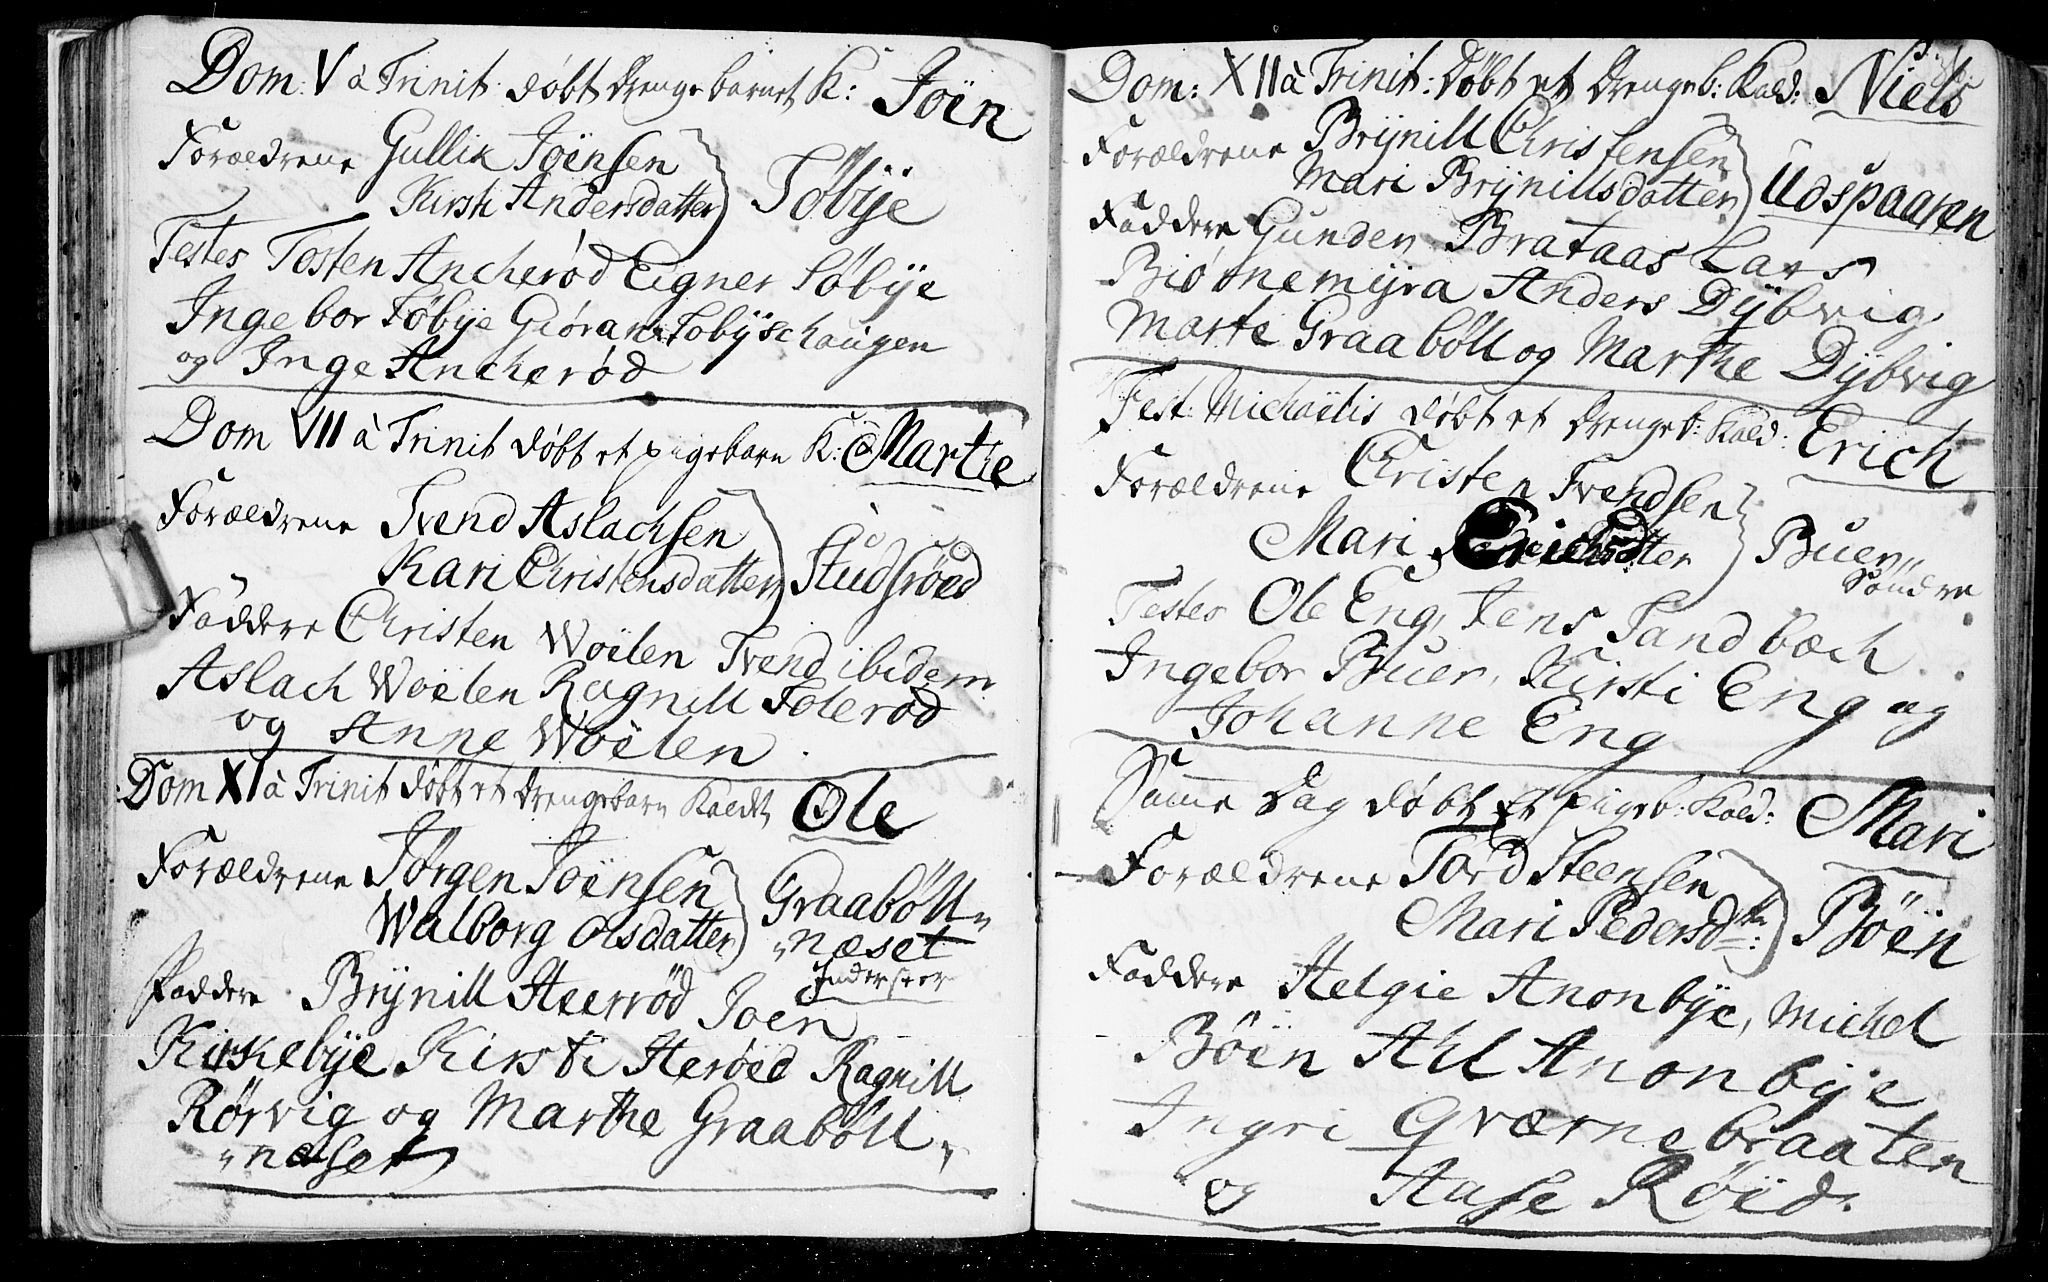 Dom: V à Trinit: døbt drenge barnet K: Joën
Forældrene Gullik Joënsen
Kirsti Andersdatter Søbÿe
Testes Tosten Ancherød Eigner Søbÿe
Ingebor Søbÿe Giøran Søbÿschaugen
og Inge Ancherød
Dom VII à Trinit døbt et pigebarn K: Marthe
Forældrene Svend Aslachsen
Kari Christensdatter Studsrøed
Faddere Christen Woëlen Svend ibidem
Aslach Woëlen Ragnill Folerød
og Anne Woëlen.
Dom XI à Trinit døbt et drengebarn Kaldt Ole
Forældrene Jørgen Joënsen Graabøll„
Walborg Olsdatter „næset
Inderster
Faddere Brÿnill Steerrød Joen
Kirkebÿe Kirsti Sterøed Ragnill
Rørvig og Marthe Graabøll„
„næset
Dom: XII à Trinit: døbt et drengeb: Kald: Niels
Forældrene Brÿnill Christensen
Mari Brÿnillsdatter Udspaaren
Faddere Gunder Brataas Lars
Biørnemÿra Anders Dÿbvig
Marte Graabøll og Marthe Dÿbvig
Fest: Michaëlis døbt et drengeb: Kald: Erich
Forældrene Christen Svendsen
Mari Erichsdatter Buer„
Søndre
Testes Ole Eng, Jens Sandbæch
Ingebor Buer, Kirsti Eng og
Johanne Eng
Samme dag døbt Et pigeb: Kald: Mari
Forældrene Tord Steensen
Mari Pedersdtr: Bøën
Faddere Helgie Anonbÿe, Michel
Bøën Ahl Anonbÿe
Ingri Qværnebraaten
og Aase Røëd.